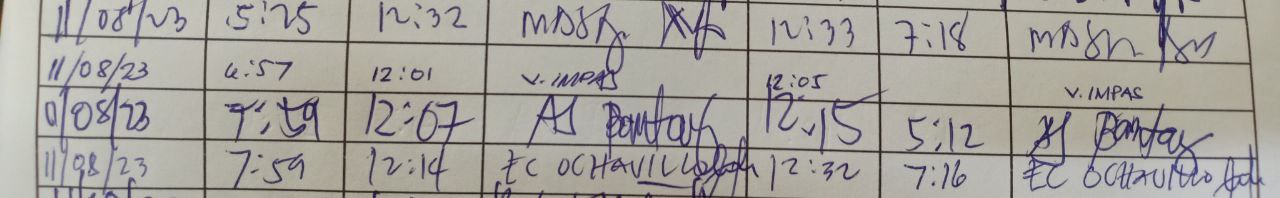 11/08/23 5:25 12:32 12:33 7:18
11/08/23 6:57 12:01 V. IMPAS 12:05 V. IMPAS
11/08/23 7:59 12:07 AJ Bantay 12:15 5:12 AJ Bantay
11/08/23 7:59 12:14 EC OCHAVILLO 12:32 7:16 EC OCHAVILLO